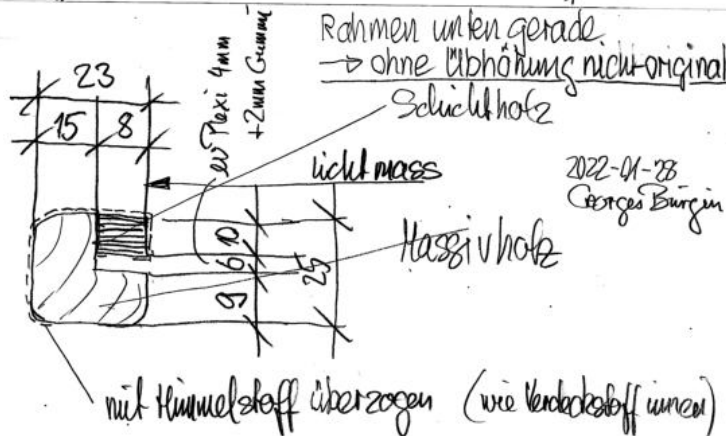 Rahmen unten gerade
→ ohne Übhöhung nicht original
23
15
8
ev Plexi 4mm
+2mm Gummi
Schichtholz
lichtmass
2022-01-28
Georges Bürgin
Massivholz
10
6
9
25
mit Himmelstoff überzogen (wie Verdeckstoff innen)